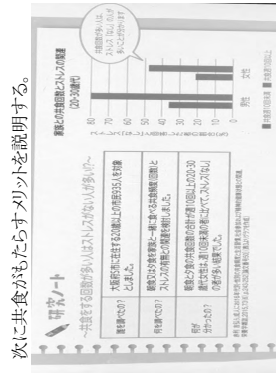 次に共食がもたらすメリットを説明する。
研究ノート
～共食をする回数が多い人はストレスがない人が多い!?～
誰を調べたの?
大阪府S市に在住する20歳以上の市民935人を対象
としました。
何を調べたの?
朝食又は夕食を家族と一緒に食べる共食頻度(回数)と
ストレスの有無との関連を検討しました。
何が
分かったの?
朝食と夕食の共食回数の合計が週10回以上の20-30
歳代女性は、週10回未満の者に比べて、ストレス「なし」
の者が多い結果でした。
家族との共食回数とストレスの関連
(20-30歳代)
共食回数が多い人は、
ストレス「なし」の人が
多いことが分かります
80
70
60
50
40
30
20
10
0
男性
女性
■共食週10回未満 ■共食週10回以上